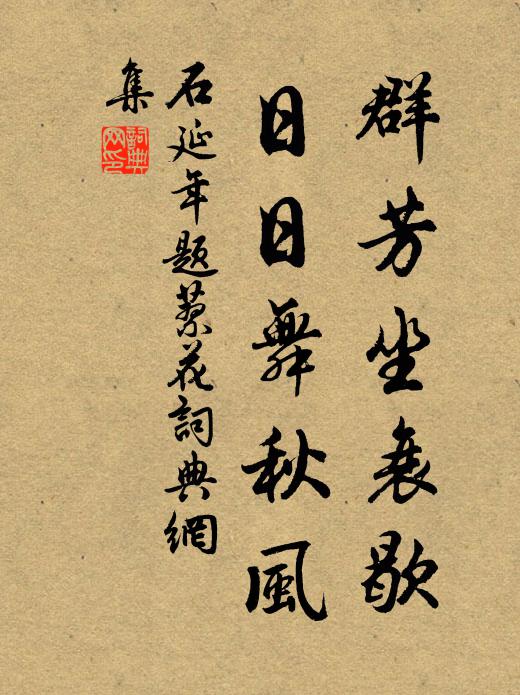 群芳坐衰歇
日日舞秋風
石延年題蓼花詞典網
集
詞典
网印